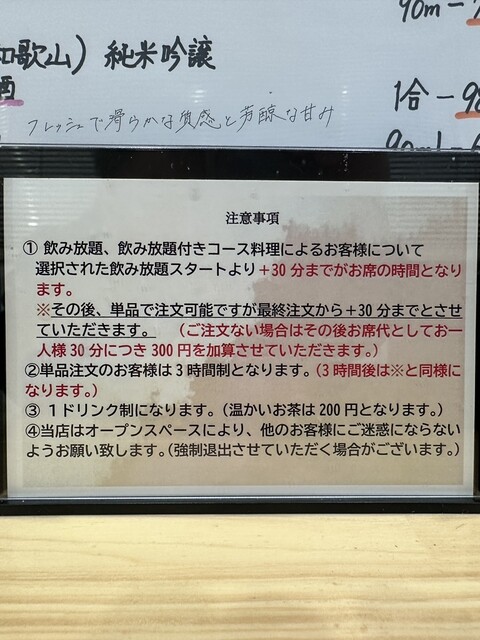 90m-
和歌山) 純米吟醸
酒
1合-98
フレッシュで滑らかな質感と芳醇な甘み
90ml-6
注意事項
① 飲み放題、飲み放題付きコース料理によるお客様について
選択された飲み放題スタートより+30分までがお席の時間となり
ます。
※その後、単品で注文可能ですが最終注文から+30分までとさせ
ていただきます。 (ご注文ない場合はその後お席代としてお一
人様30分につき300円を加算させていただきます。)
②単品注文のお客様は3時間制となります。(3時間後は※と同様に
なります。)
③ 1ドリンク制になります。(温かいお茶は200円となります。)
④当店はオープンスペースにより、他のお客様にご迷惑にならない
ようお願い致します。(強制退出させていただく場合がございます。)